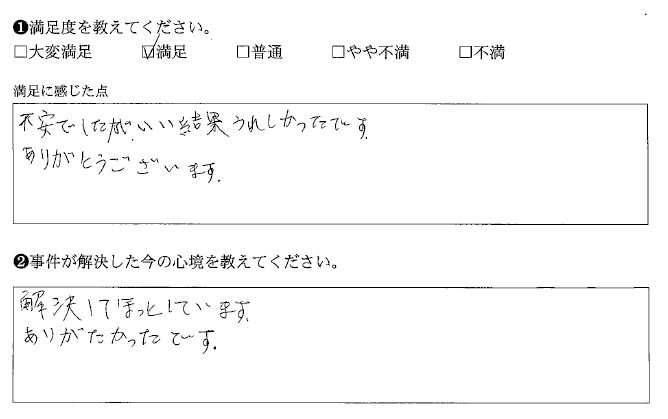 ❶満足度を教えてください。
□大変満足 ☑満足 □普通 □やや不満 □不満
満足に感じた点
不安でしたが、いい結果うれしかったです。
ありがとうございます。
❷事件が解決した今の心境を教えてください。
解決してほっとしています。
ありがたかったです。